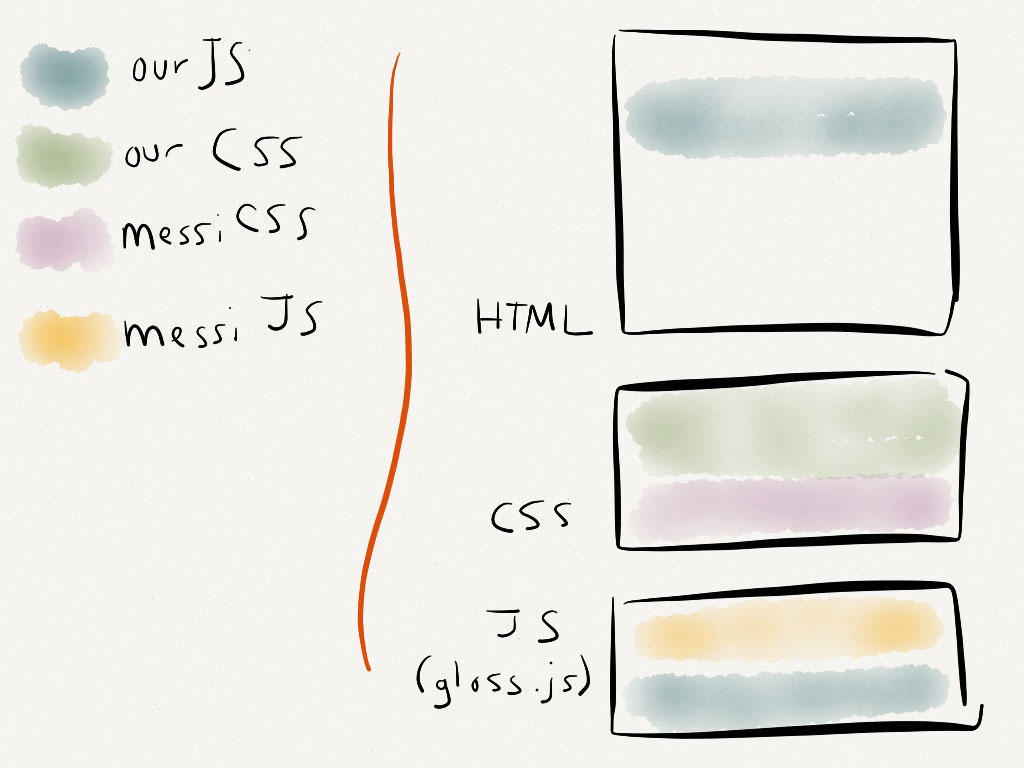 our JS
our CSS
messi CSS
messi JS
HTML
CSS
JS
(gloss.js)